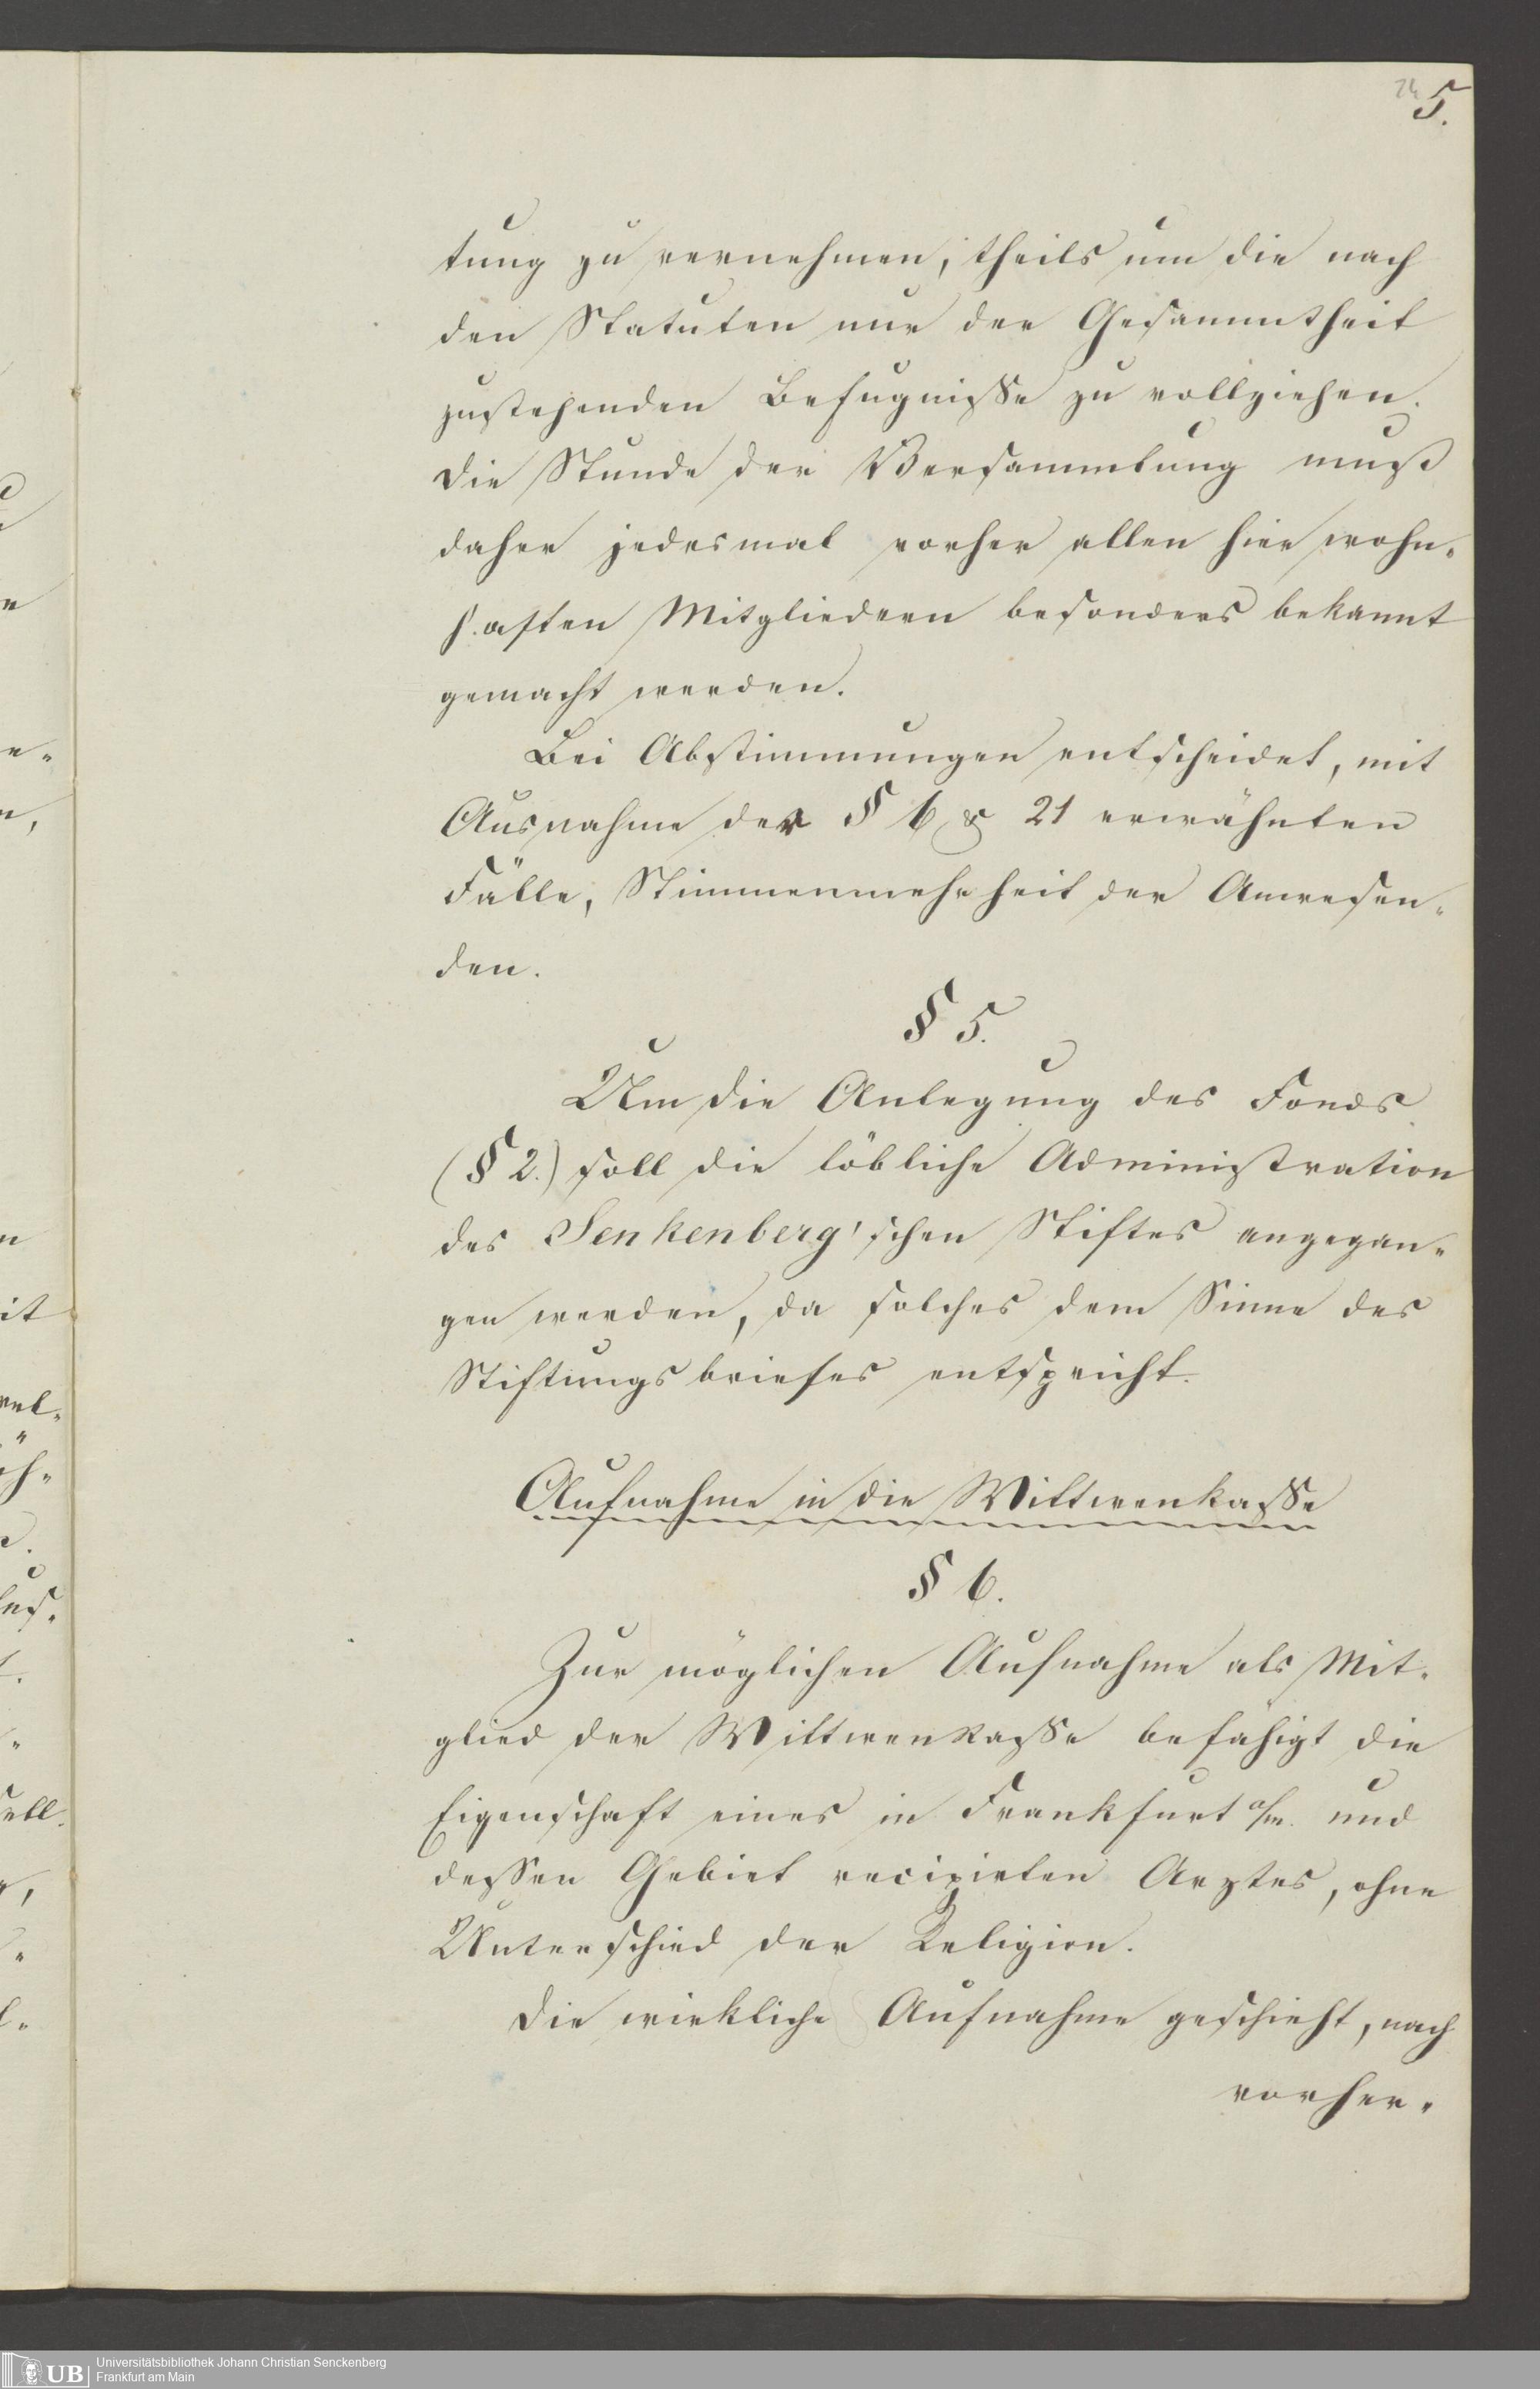 24 5.
tung zu vernehmen, theils um die nach
den Statuten nur der Gesammtheit
zustehenden Befugnisse zu vollziehen.
Die Stunde der Versammlung muß
daher jedesmal vorher allen hier wohn-
haften Mitgliedern besonders bekannt
gemacht werden.
Bei Abstimmungen entscheidet, mit
Ausnahme der § 6 & 21 erwähnten
Fälle, Stimmenmehrheit der Anwesen-
den.
§ 5.
Um die Anlegung des Fonds
(§ 2.) soll die löbliche Administration
des Senkenberg'schen Stiftes angegan-
gen werden, da solches dem Sinne des
Stiftungsbriefes entspricht.
Aufnahme in die Wittwenkasse
§ 6.
Zur möglichen Aufnahme als Mit-
glied der Wittwenkasse befähigt die
Eigenschaft eines in Frankfurt a/m. und
dessen Gebiet recipirten Arztes, ohne
Unterschied der Religion.
Die wirkliche Aufnahme geschieht, nach
vorher-
UB Universitätsbibliothek Johann Christian Senckenberg
Frankfurt am Main